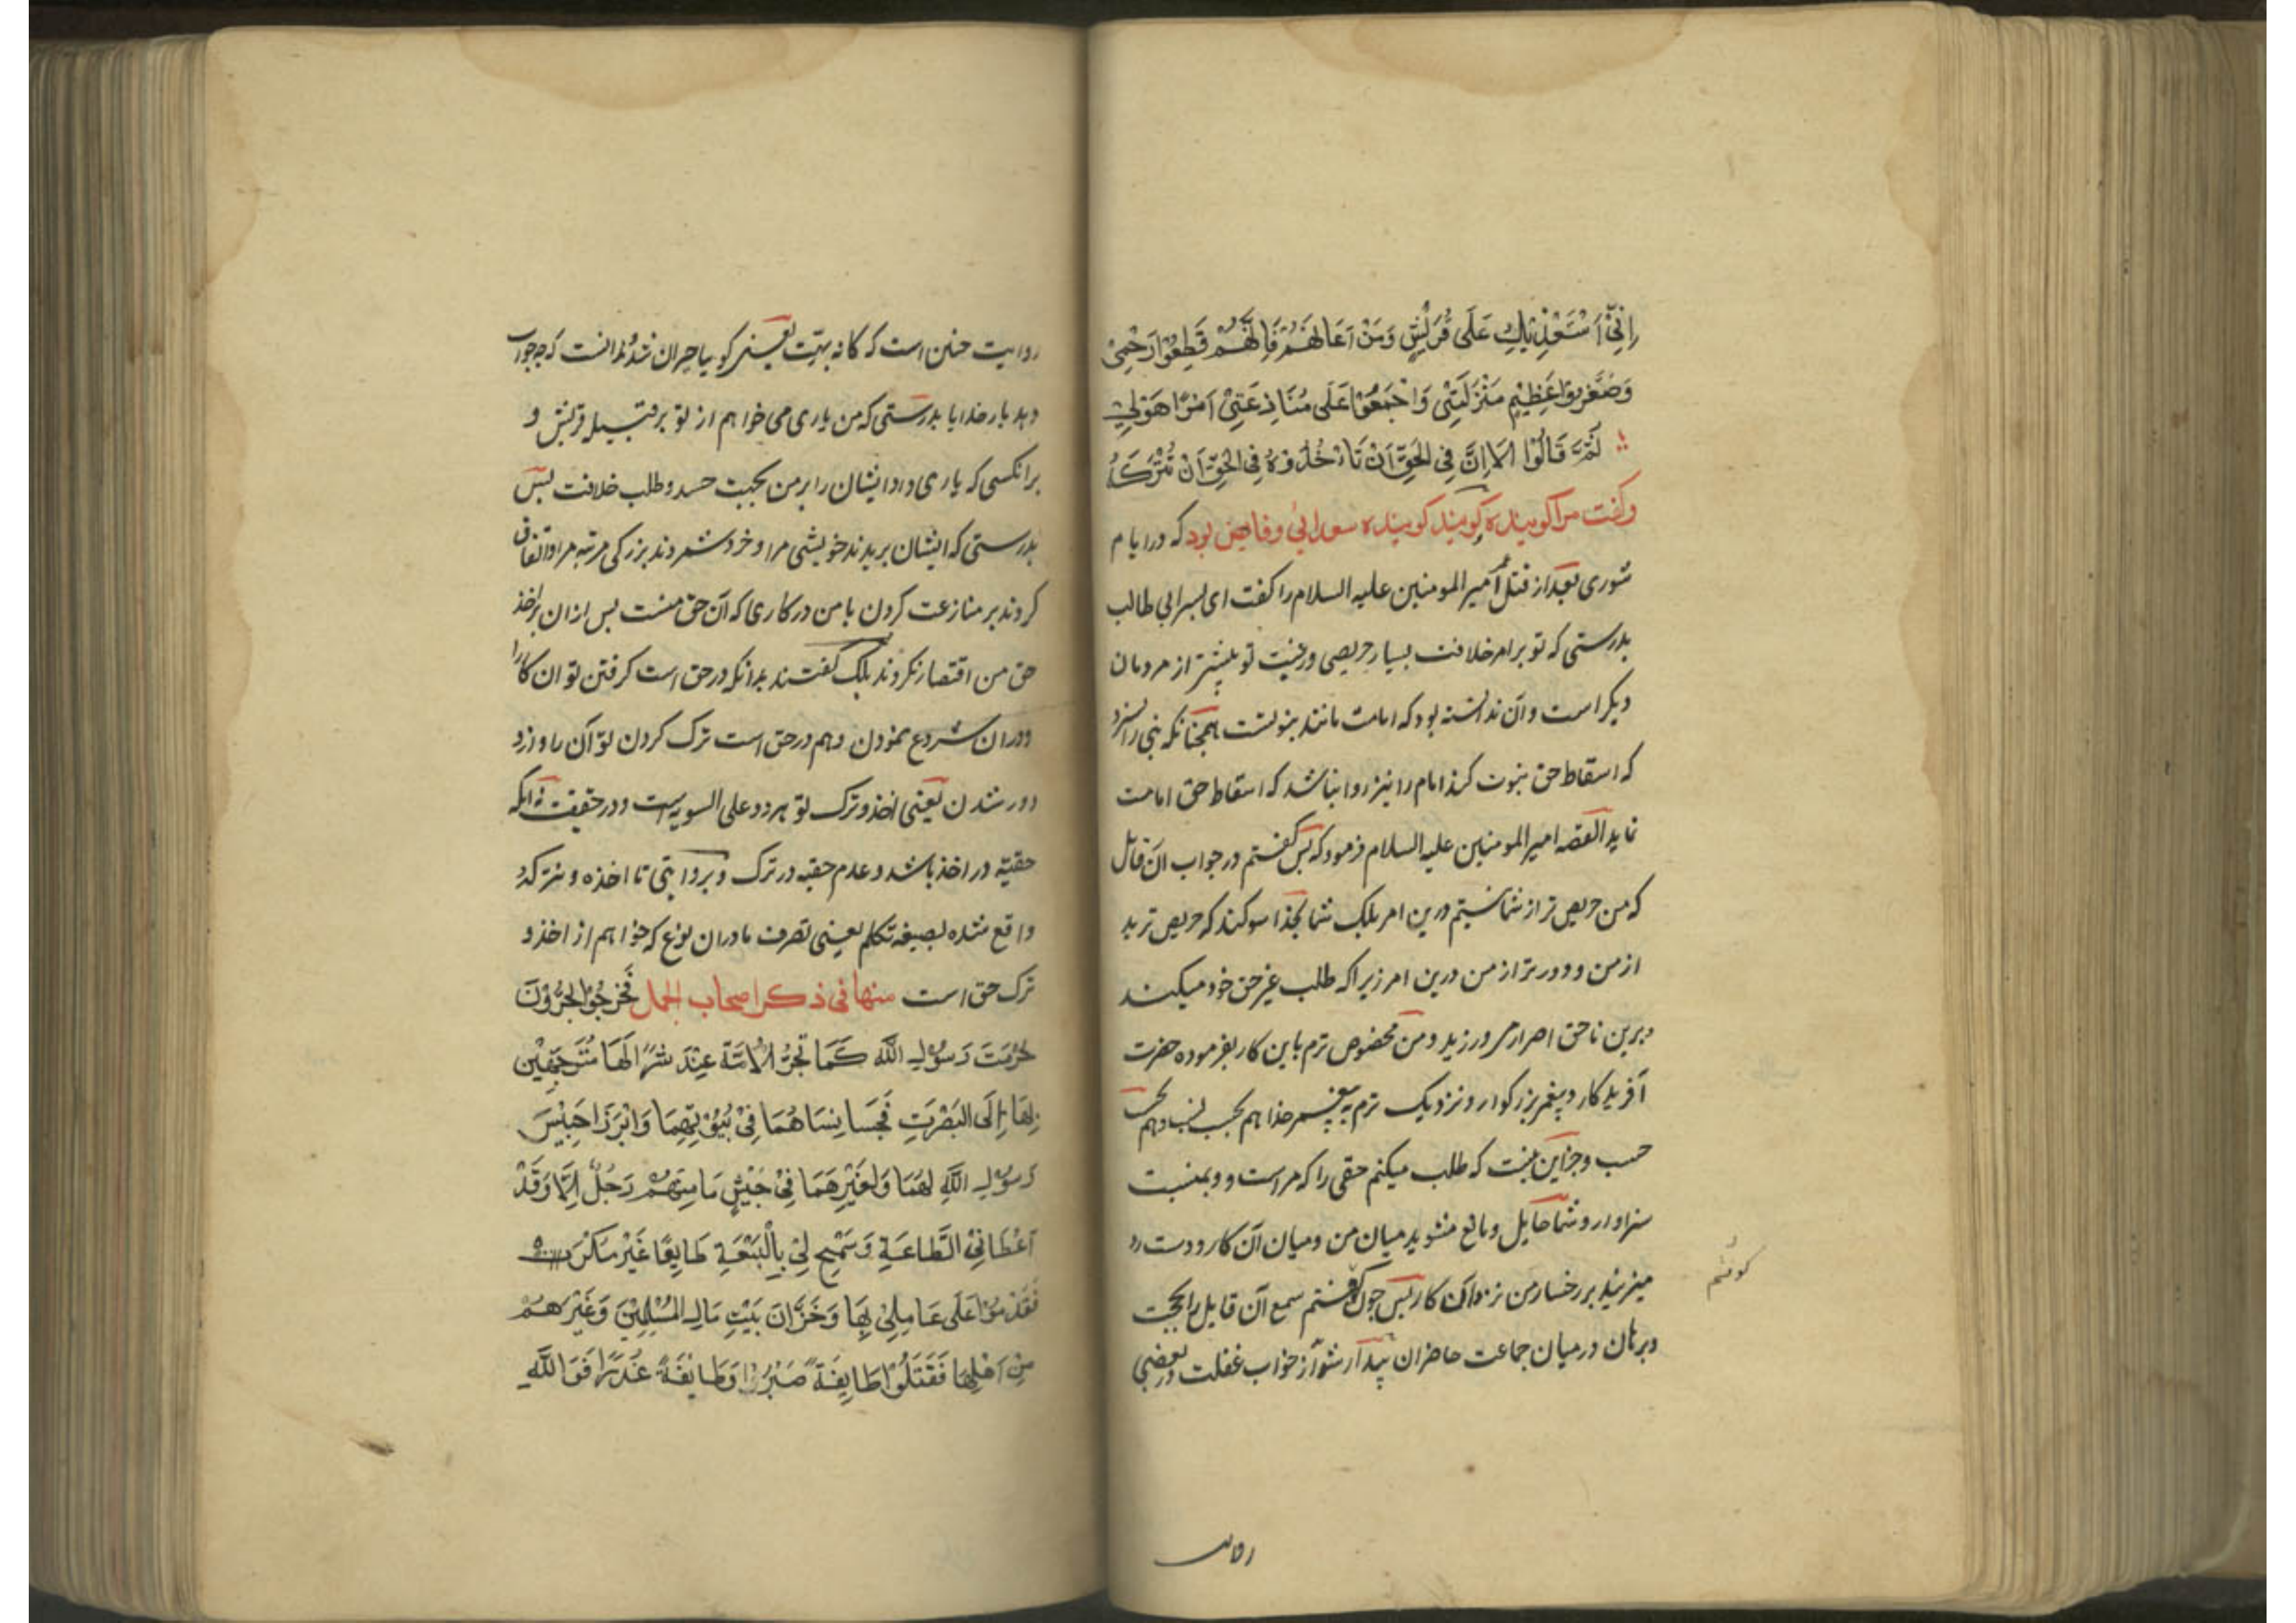 اِنِّیْ اَسْتَعْذِیْكَ عَلَی قُرَیْشٍ وَمَنْ اَعَانَهُمْ فَاِنَّهُمْ قَطِعُوْا رَحْمِیْ
وَصَغَّرُوْا عَظِیْمِ مَنْزَلَتِیْ وَاجْمَعُوْا عَلَی مُنَاذِعَتِیْ اَمْرًا هَوَلِیْ
ثُمَّ قَالُوْا اَلَا اِنَّ فِی الْحَقِّ اَنْ تَاْخُذُوْهُ فِی الْحَقِّ اَنْ تُتْرَكَهُ
وکفت مرا کوینده کویند کوینده سعدابی وقاص بود که در ایام
شوری بعد از قتل عمر امیر المومنین علیه السلام را کفت ای پسر ابی طالب
بدرستی که تو بر امر خلافت بسیار حریصی ورغبت تو بیشتر از مردمان
دیکر است وآن ندانسته بود که امامت مانند بنوتست همچنانکه نبی را نسزد
که اسقاط حق نبوت کند امام را نیز روا نباشد که اسقاط حق امامت
نماید القصه امیر المومنین علیه السلام فرمود که پس کفتم در جواب ان قائل
که من حریص تر از شما نیستم درین امر بلک شما بخدا سوکند که حریص ترید
از من ودورتر از من درین امر زیرا که طلب غیر حق خود میکنند
وبرین ناحق اصرار می ورزید ومن مخصوص ترم باین کار بفرموده حضرت
آفریدکار وپیغمبر بزرکوار ونزدیک ترم به پیغمبر خدا هم بحسب نسب وهم بحسب
حسب وجزاین نیست که طلب میکنم حقی را که مراست ووبمنیست
سزاوار وشما حایل ومانع میشوید میان من ومیان آن کار ودست رد
میزنید بر رخسار من نزد آن کار پس چون کوفتم سمع آن قایل را بحجت
کوفتم
وبرهان درمیان جماعت حاضران بیدار شد از خواب غفلت ودر بعضی
روایت
روایت چنین است که کانه بهت یعنی کویا حیران شد وندانست که چه جواب
دهد بار خدایا بدرستی که من یاری می خواهم از تو بر قبیله قریش و
برانکسی که یاری داد ایشان را برمن بجبت حسد وطلب خلافت پس
بدرستی که ایشان بریدند خویشی مرا وخرد شمردند بزرکی مرتبه مرا واتفاق
کردند بر منازعت کردن با من درکاری که آن حق منست پس ازان براخذ
حق من اقتصار نکردند بلک کفتند بدانکه درحق است کرفتن تو ان کار را
ودران شروع نمودن وهم درحق است ترک کردن تو آن را وازو
دور شدن یعنی اخذ وترک تو هردو علی السویه است ودر حقیقت نه انکه
حقیّه در اخذ باشد وعدم حقیه درترک وبروایتی تا اخذه ونترکه
واقع شده بصیغه تکلم یعنی تصرف ما دران نوع که خواهم از اخذ و
ترک حق است منها فی ذکر اصحاب الجمل فَخَرَجُوْا یَجُرُّوْنَ
حُرْمَتَ رَسُوْلِ اللّٰهِ كَمَا تُجَرُّ الْاَمَةُ عِنْدَ شَرًا لَهَا مُتَوَجِّهِیْن
بِهَا اِلَی الْبَصْرَتِ فَحَبَسَا نِسَاهُمَا فِیْ بُیُوْتِهِمَا وَاَبْرَزَا حَبِیْسَ
رَسُوْلِ اللّٰهِ لَهُمَا وَلِغَیْرِهَمَا فِیْ جَیْشٍ مَا مِنْهُمْ رَجُلٌ اِلَّا وَقَدْ
اَعْطَانِیْ الطَّاعَةِ وَسَمِحَ لِیْ بِالْبَیْعَةِ طَایِعًا غَیْرَ مَكْرَهٍ
فَقَدِمُوْا عَلَی عَامِلِیْ بِهَا وَخَزَّانَ بَیْتِ مَالِ الْمُسْلِمِیْنَ وَغَیْرِهِمْ
مِنْ اَهْلِهَا فَقَتَلُوْا طَایِفَةً صَبْرًا وَطَایِفَةً غَدْرًا فَوَاللّٰهِ